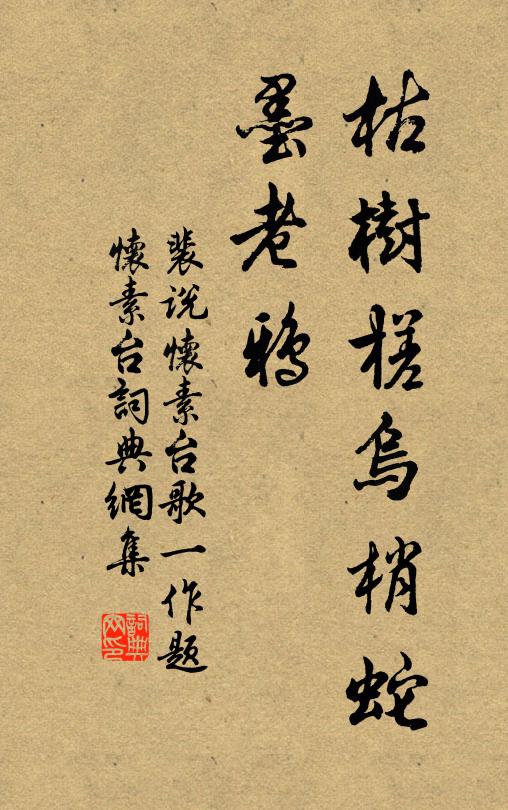 枯樹槎烏梢蛇
墨老鴉
裴说懷素台歌一作題
懷素台詞典網集
詞典網印